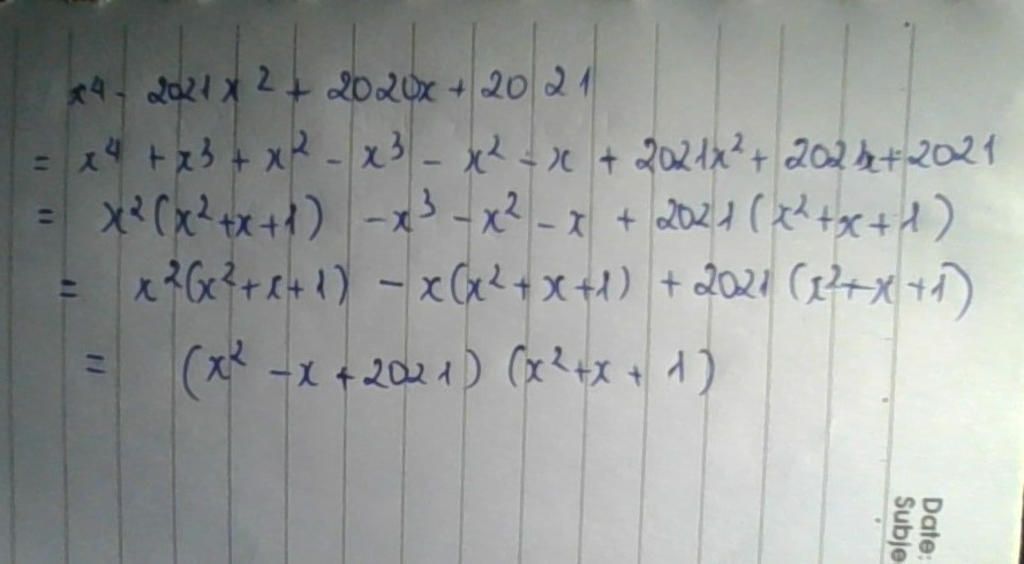 x⁴ - 2021x² + 2020x + 2021
= x⁴ + x³ + x² - x³ - x² - x + 2021x² + 2021x + 2021
= x²(x²+x+1) - x³ - x² - x + 2021(x²+x+1)
= x²(x²+x+1) - x(x²+x+1) + 2021(x²+x+1)
= (x² - x + 2021)(x²+x+1)
Date:
Subje